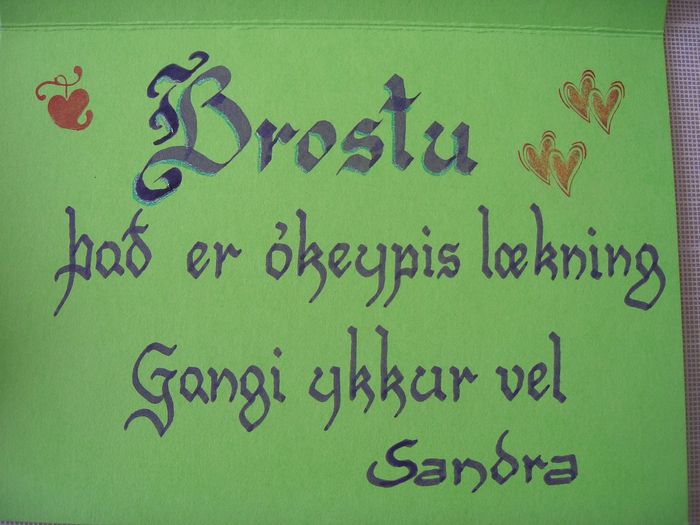 Brostu
það er ókeypis lækning
Gangi ykkur vel
Sandra